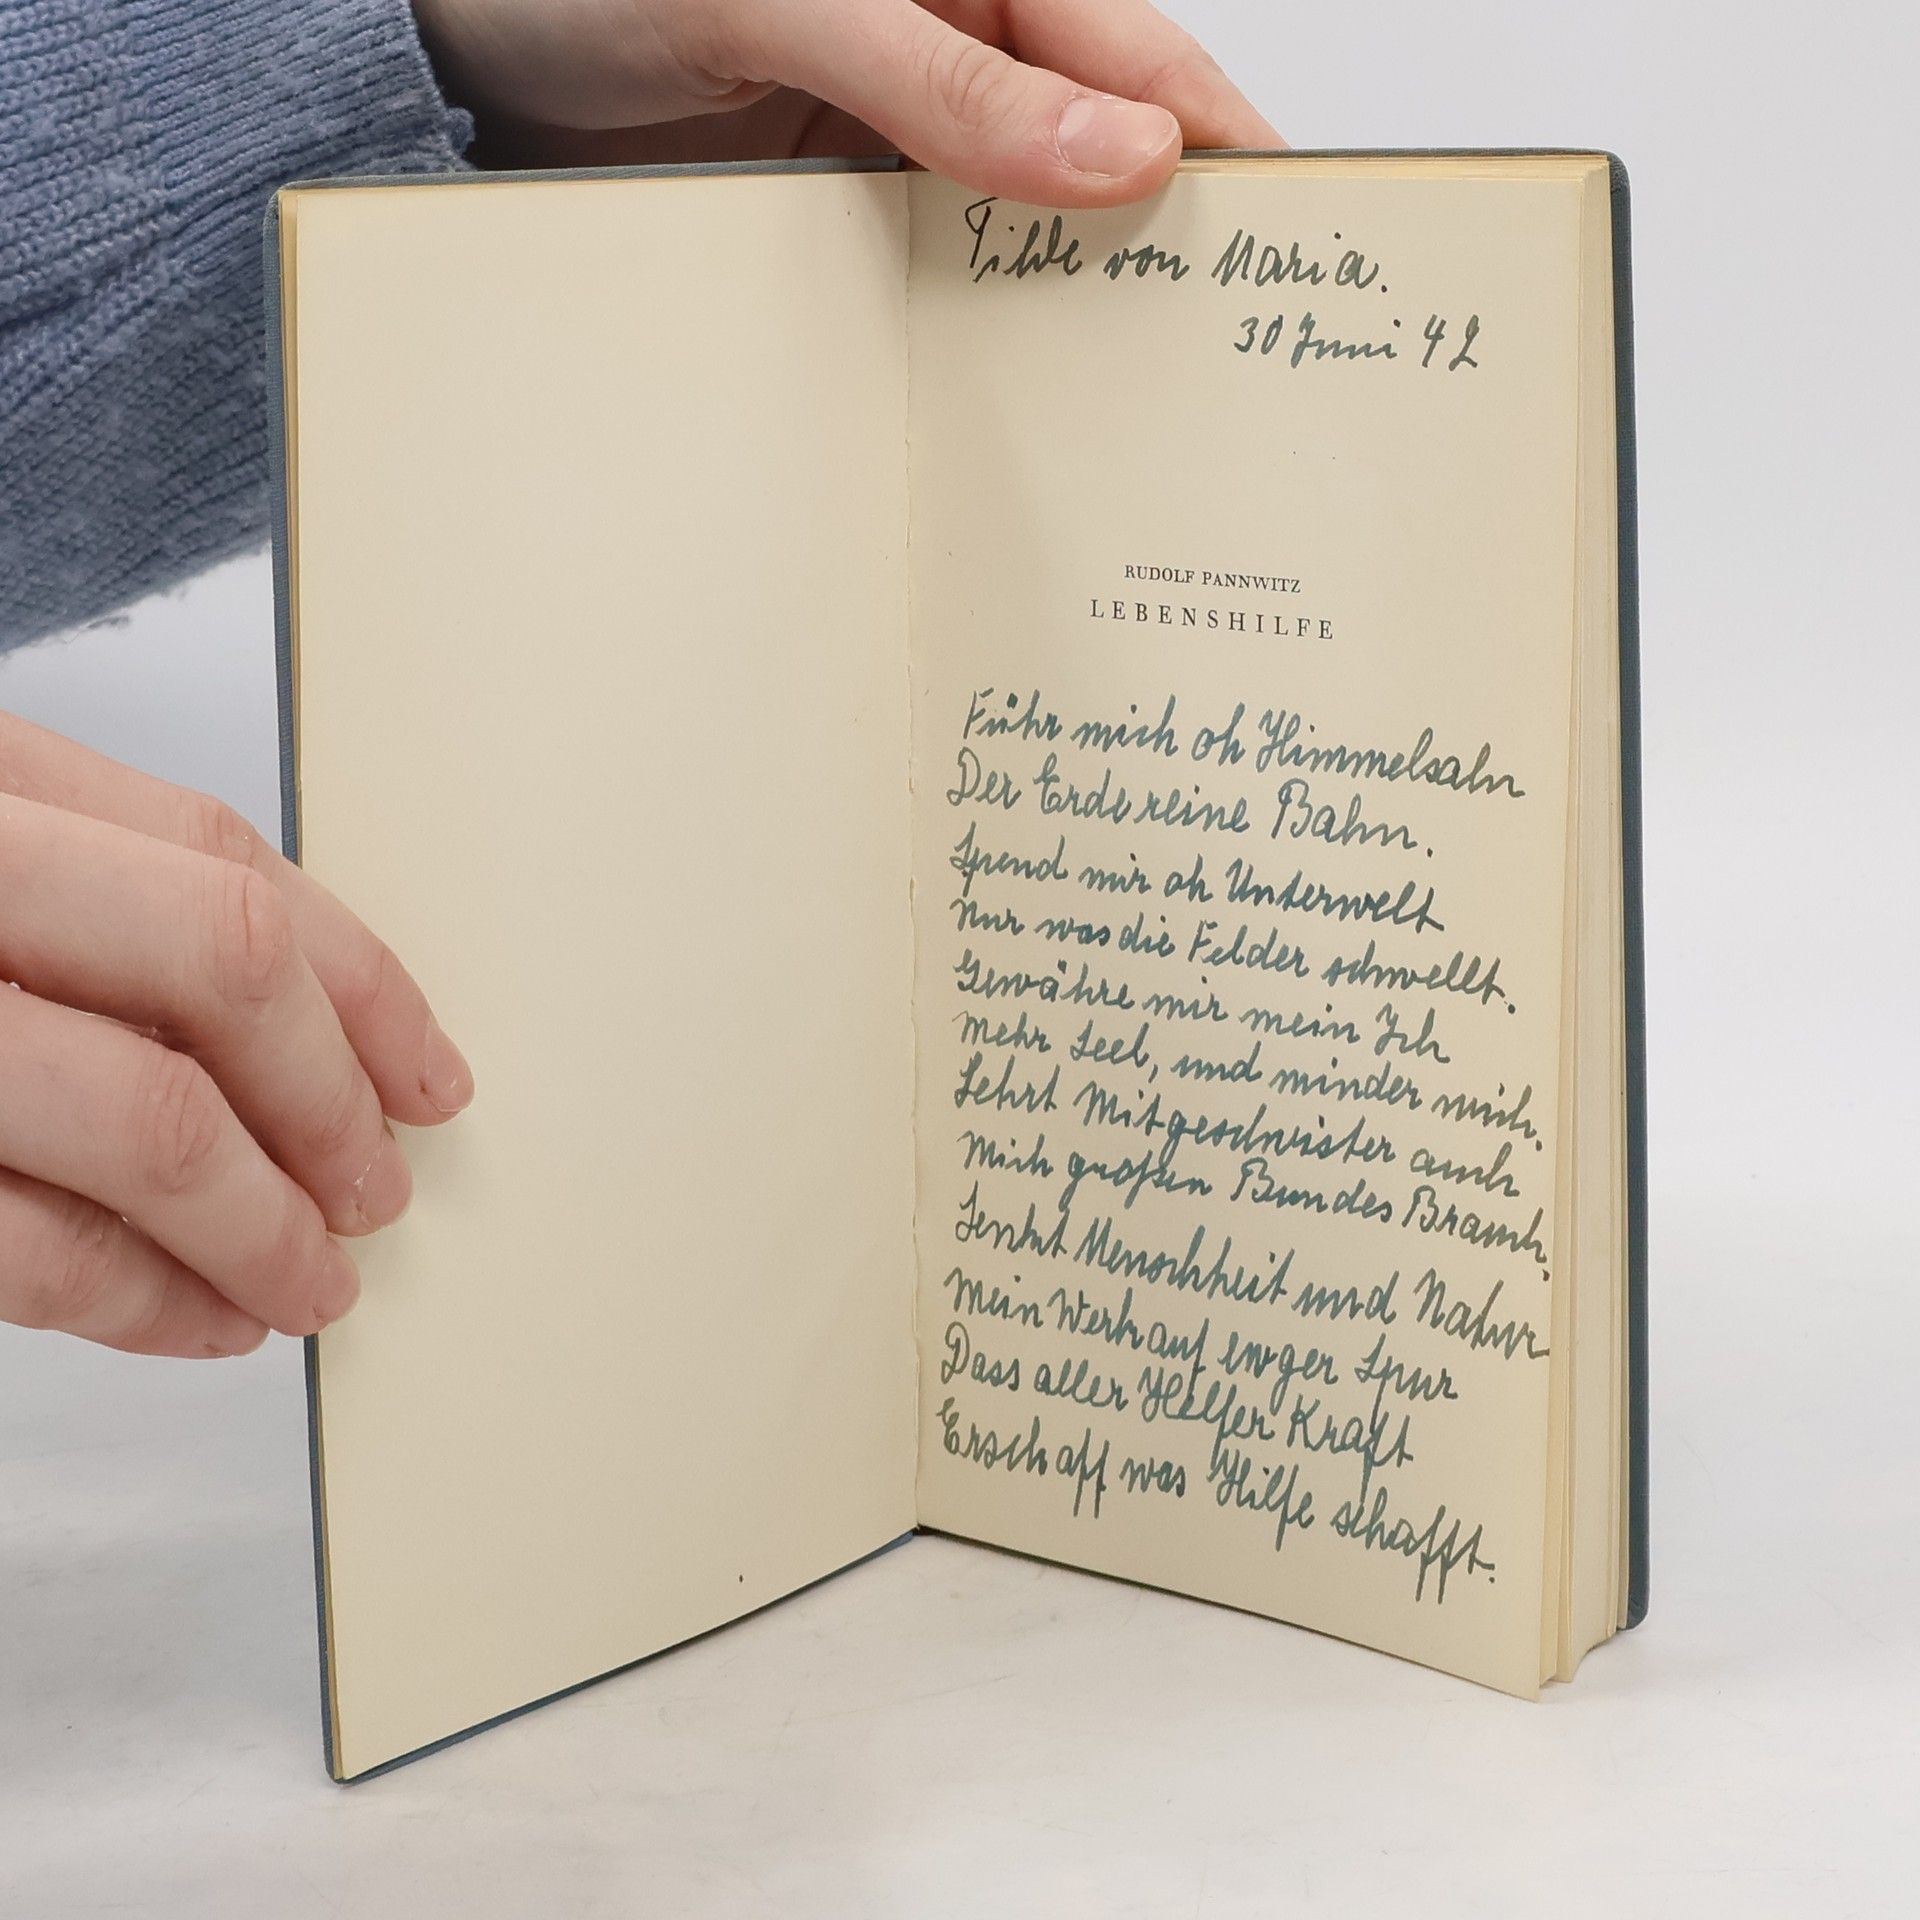 Tilde von Maria.
30 Juni 42
RUDOLF PANNWITZ
LEBENSHILFE
Führ mich oh Himmelsahn
Der Erde reine Bahn.
Spend mir oh Unterwelt
Nur was die Felder schwellt.
Gewähre mir mein Ich
Mehr Seel, und minder mich.
Lehrt Mitgeschwister auch
Mich großen Bundes Brauch.
Lenkt Menschheit und Natur
Mein Werk auf ewger Spur
Dass aller Helfer Kraft
Erschaff was Hilfe schafft.